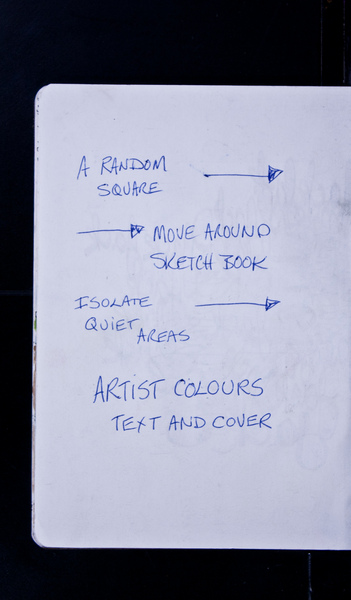 A RANDOM
SQUARE
MOVE AROUND
SKETCH BOOK
ISOLATE
QUIET
AREAS
ARTIST COLOURS
TEXT AND COVER